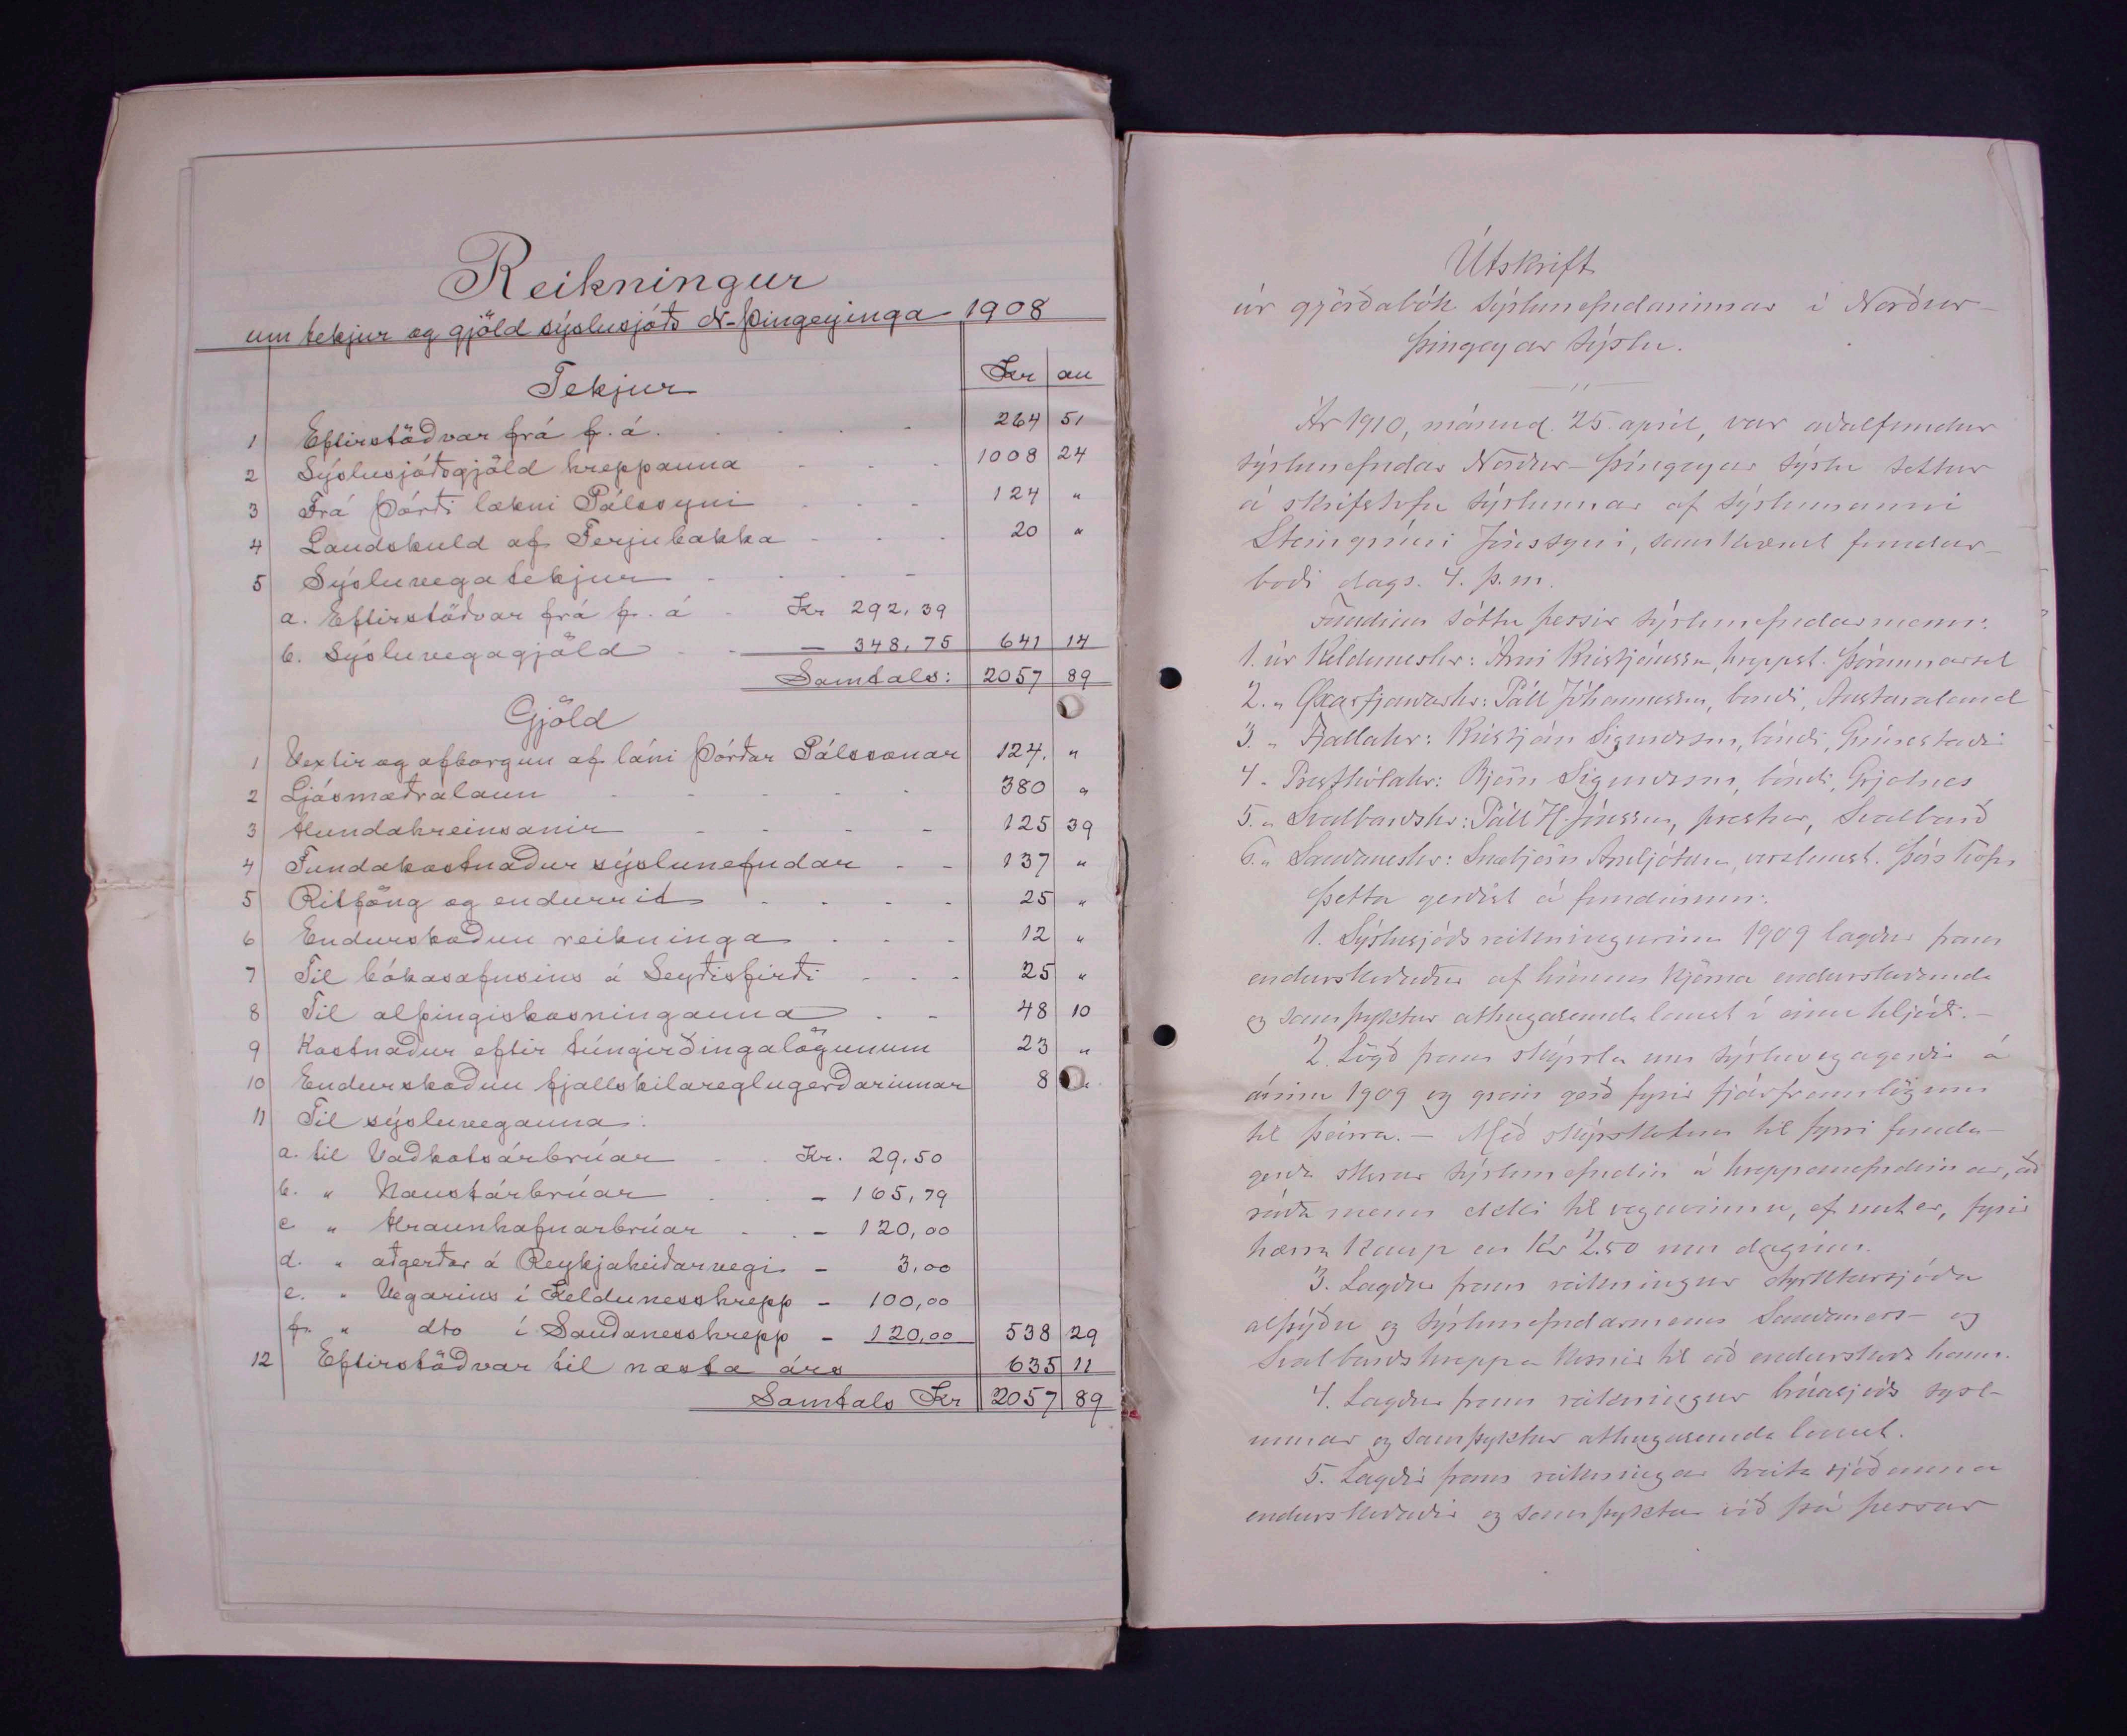 Reikningur
um tekjur og gjöld sýslusjóðs N-Þingeyinga 1908
Tekjur Kr au
1 Eftirstöðvar frá f. á. 264 51
2 Sýslusjóðsgjöld hreppanna 1008 24
3 Frá Þórði lækni Pálssyni 124 "
4 Landskuld af Ferjubakka 20 "
5 Sýsluvegatekjur
a. Eftirstöðvar frá f. á Kr 292,39
b. Sýsluvegagjöld — 348,75 641 14
Samtals: 2057 89
Gjöld
1 Vextir og afborgun af láni Þórðar Pálssonar 124. "
2 Ljósmæðralaun 380 "
3 Hundahreinsanir 125 39
4 Fundakostnaður sýslunefndar 137 "
5 Ritföng og endurrit 25 "
6 Endurskoðun reikninga 12 "
7 Til bókasafnsins á Seyðisfirði 25 "
8 Til alþingiskosninganna 48 10
9 Kostnaður eftir túngirðingalögunum 23 "
10 Endurskoðun fjallskilareglugerðarinnar 8 "
11 Til sýsluveganna:
a. til Vaðkotsárbrúar Kr. 29,50
b. " Naustárbrúar - 165,79
c " Hraunhafnarbrúar - 120,00
d. " aðgerðar á Reykjaheiðarvegi - 3,00
e. " Vegarins í Keldunesshrepp - 100,00
f. " dto í Sauðanesshrepp - 120,00 538 29
12 Eftirstöðvar til næsta árs 635 11
Samtals Kr 2057 89
Útskrift
úr gjörðabók sýslunefndarinnar í Norður-
Þingeyar sýslu.
Ár 1910, mánud. 25. apríl, var aðalfundur
sýslunefndar Norður-Þingeyar sýslu settur
á skrifstofu sýslunnar af sýslumanni
Steingrími Jónssyni, samkvæmt fundar-
boði dags. 4. þ.m.
Fundinn sóttu þessir sýslunefndarmenn:
1. úr Kelduneshr: Árni Kristjánsson, hreppst. Þórunnarsel
2. " Öxarfjarðarhr: Páll Jóhannesson, bóndi, Austaraland
3. " Fjallahr: Kristján Sigurðsson, bóndi, Grímsstaði
4 - Presthólahr: Björn Sigurðsson, bóndi, Grjótnes
5. " Svalbarðshr: Páll H. Jónsson, prestur, Svalbarð
6. " Sauðaneshr: Snæbjörn Arnljótsson, verslunarst. Þórshöfn
Þetta gerðist á fundinum:
1. Sýslusjóðs reikningurinn 1909 lagður fram
endurskoðaður af hinum kjörna endurskoðanda
og samþyktur athugasemdalaust í einu hljóði. -
2. Lögð fram skýrsla um sýsluvegagerðir á
árinu 1909 og grein gerð fyrir fjárframlögum
til þeirra. - Með skýrskotun til fyrri funda-
gerða skorar sýslunefndin á hreppsnefndirnar, að
ráða menn ekki til vegavinnu, ef unt er, fyrir
hærra kaup en Kr 2.50 um daginn.
3. Lagður fram reikningur styrktarsjóða
alþýðu og sýslunefndarmenn Sauðaness- og
Svalbarðshreppa kosnir til að endurskoða hann.
4. Lagður fram reikningur brúasjóðs sýsl-
unnar og samþyktur athugasemdalaust.
5. Lagðir fram reikningar sveitasjóðanna
endurskoðaðir og samþyktar við þá þessar